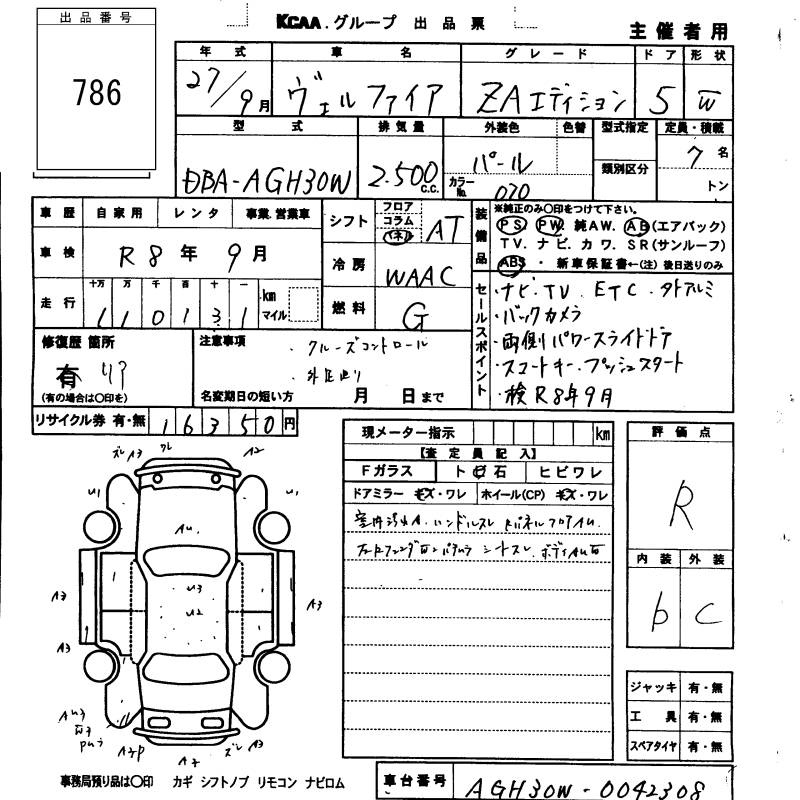 出品番号
786
KCAA.グループ 出品票
主催者用
年式 車名 グレード ドア 形状
27/9月 ヴェルファイア ZAエディション 5 W
型式 排気量 外装色 色替 型式指定 定員・積載
DBA-AGH30W 2.500c.c. パール 7名
カラーNo. 070 類別区分 トン
車歴 自家用 レンタ 事業.営業車
車検 R8年9月
走行 十万 万 千 百 十 一 km マイル
110131
シフト フロア コラム パネル AT
冷房 WAAC
燃料 G
装備品 ※純正のみ○印をつけて下さい。
PS. PW. 純AW. AB(エアバック)
TV. ナビ. カワ. SR(サンルーフ)
ABS ・ 新車保証書←(注) 後日送りのみ
セールスポイント
・ナビ.TV. ETC. 外アルミ
・バックカメラ
・両側パワースライドドア
・スマートキー.プッシュスタート
・検R8年9月
修復歴 箇所
有 リア
(有の場合は○印を)
注意事項 . クルーズコントロール
名変期日の短い方 月 日まで
リサイクル券 有・無 16350円
現メーター指示 km
【査定員記入】
Fガラス ト石 ヒビワレ
ドアミラー キズ・ワレ ホイール(CP) キズ・ワレ
室内汚れA.ハンドルスレ
シートスレ.
評価点
R
内装 外装
b C
ズレ A3 ワレ A2
U1 U1
AU.
U3
U2
A3 A3
A3
AU3
A2P A2 ズレ A3
ジャッキ 有・無
工具 有・無
スペアタイヤ 有・無
事務局預り品は○印 カギ シフトノブ リモコン ナビロム
車台番号 AGH30W-0042308